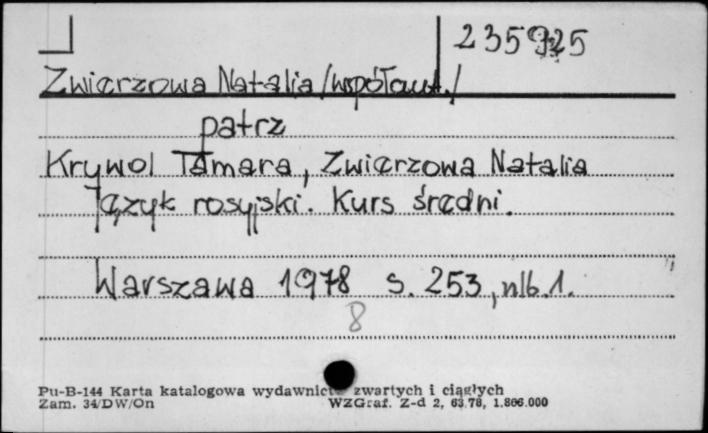 235925
Zwierzowa Natalia /współaut./
patrz
Krywol Tamara, Zwierzowa Natalia
Język rosyjski. Kurs średni.
Warszawa 1978 s. 253, nlb. 1.
8
Pu-B-144 Karta katalogowa wydawnictw zwartych i ciągłych
Zam. 34/DW/On WZGraf. Z-d 2, 63.78, 1.866.000